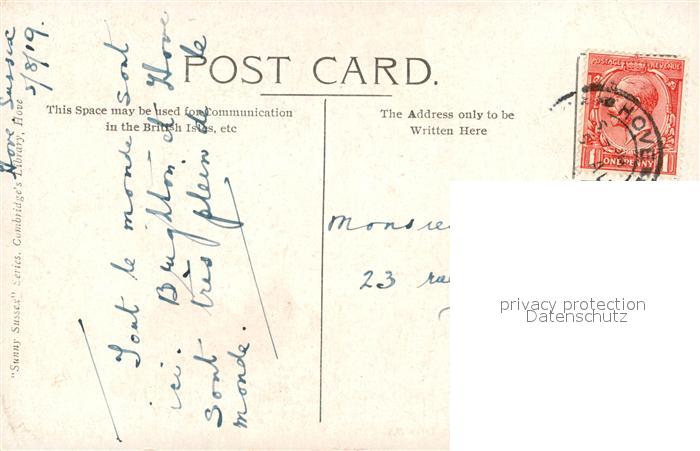 POST CARD.
This Space may be used for Communication
in the British Isles, etc
The Address only to be
Written Here
"Sunny Sussex" Series. Combridge's Library, Hove
Hove Sussex
5/8/19.
Tout le monde sont
ici. Brighton et Hove
sont très plein de
monde.
Monsie
23 rue
POSTAGE REVENUE
1 ONE PENNY 1
HOVE
privacy protection
Datenschutz